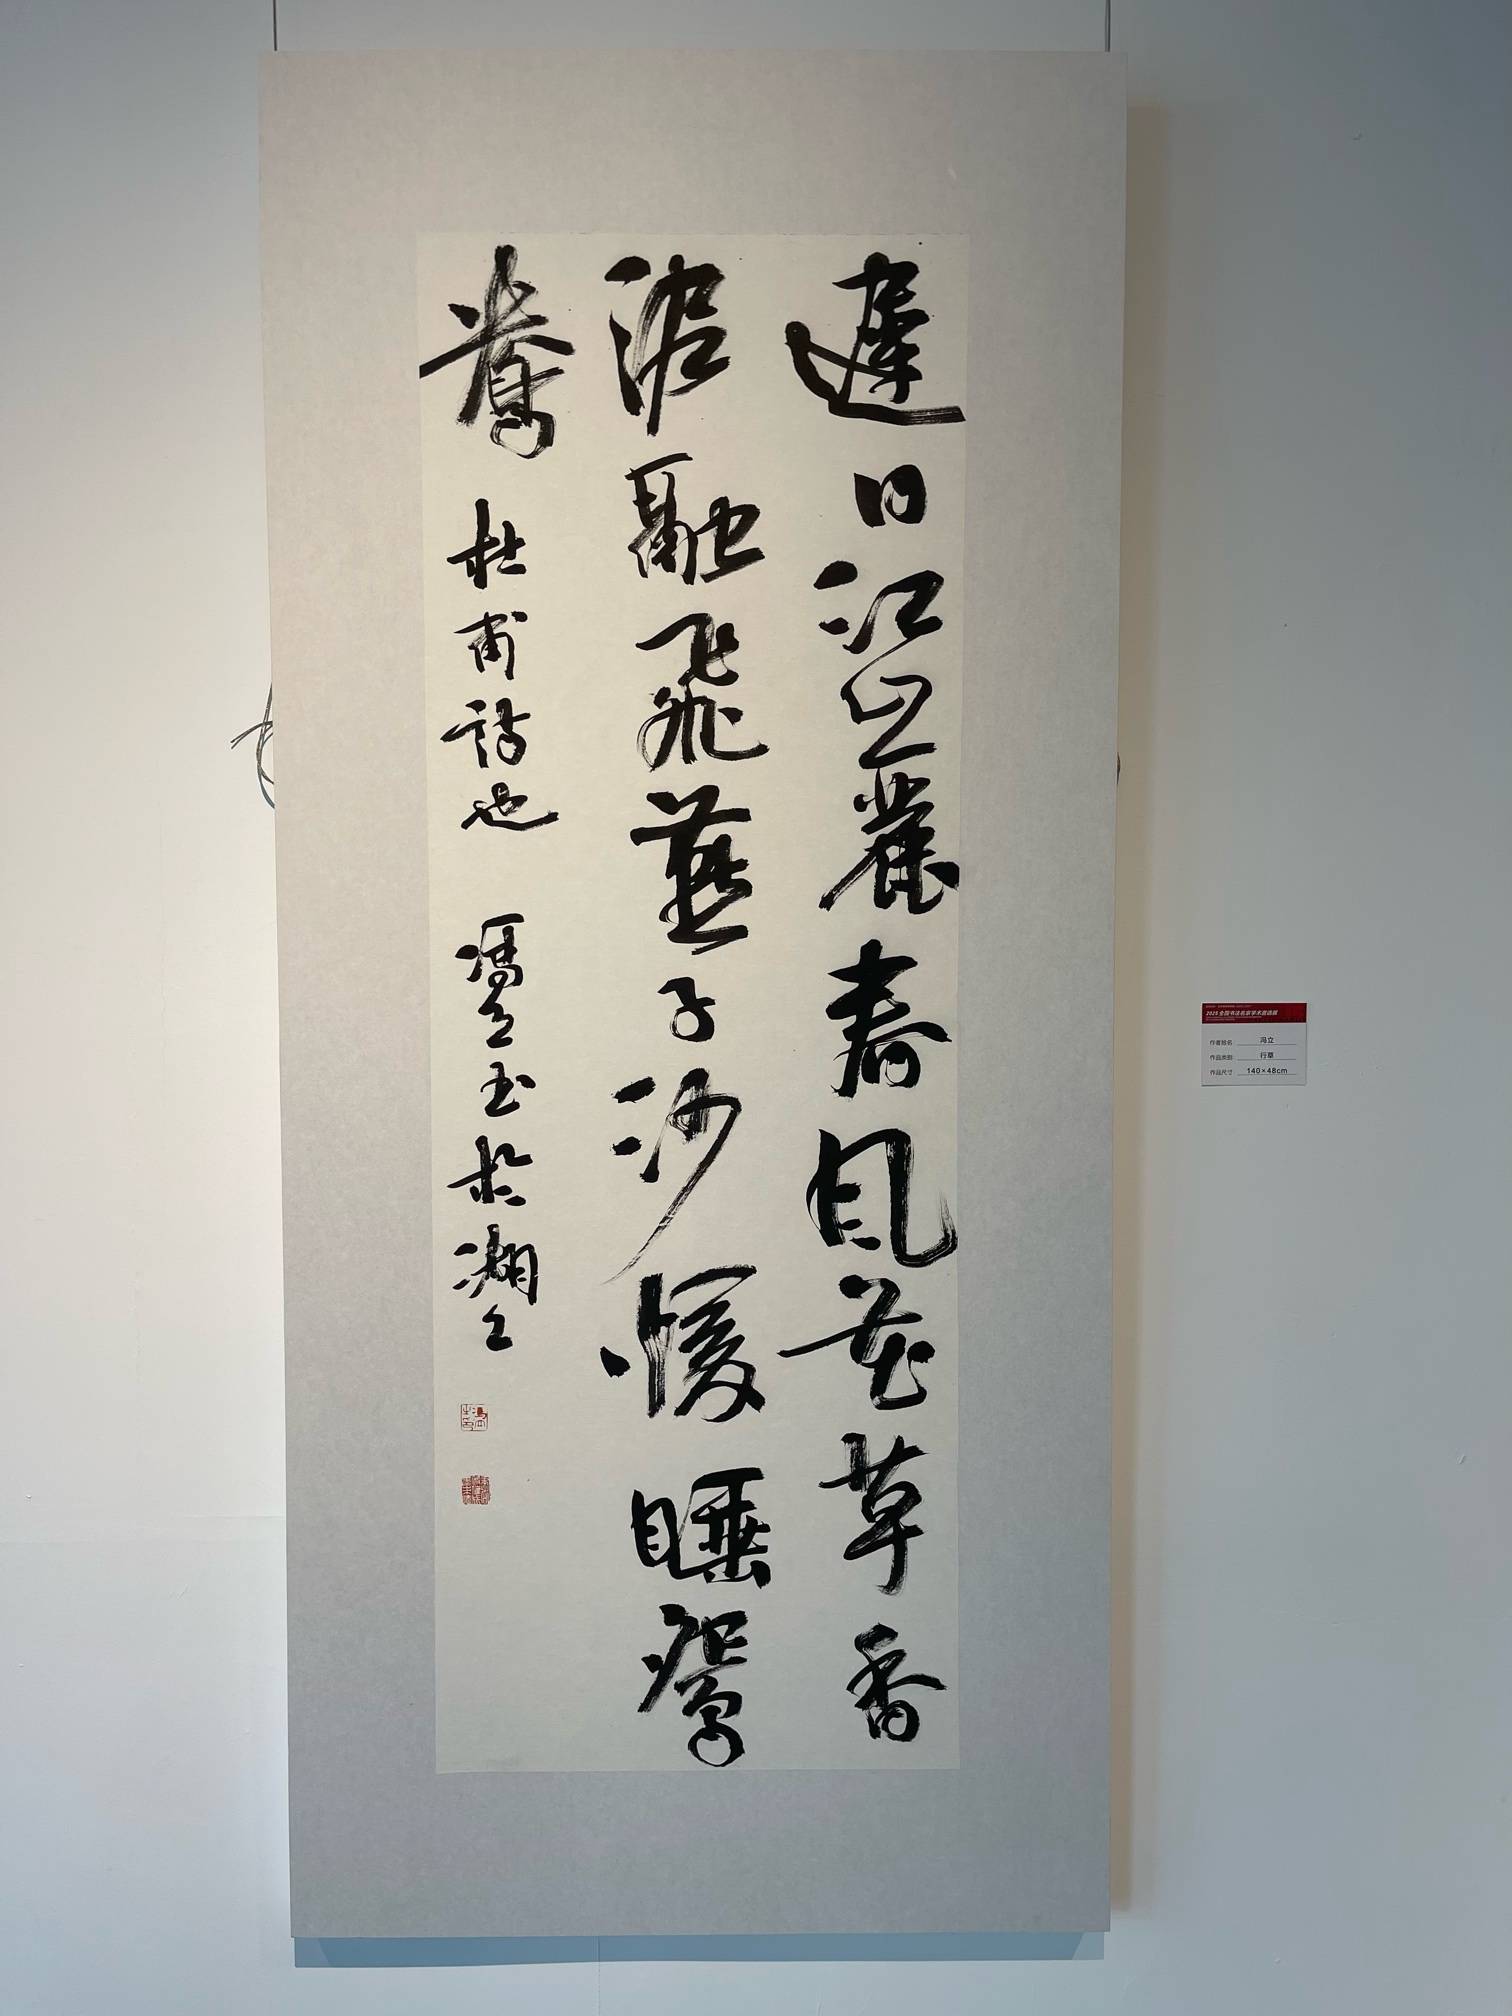 遲日江山麗春風花草香
泥融飛燕子沙暖睡鴛
鴦 杜甫詩也 馮立書於湖上
2025全国书法名家学术邀请展
作者姓名 冯立
作品类别 行草
作品尺寸 140×48cm